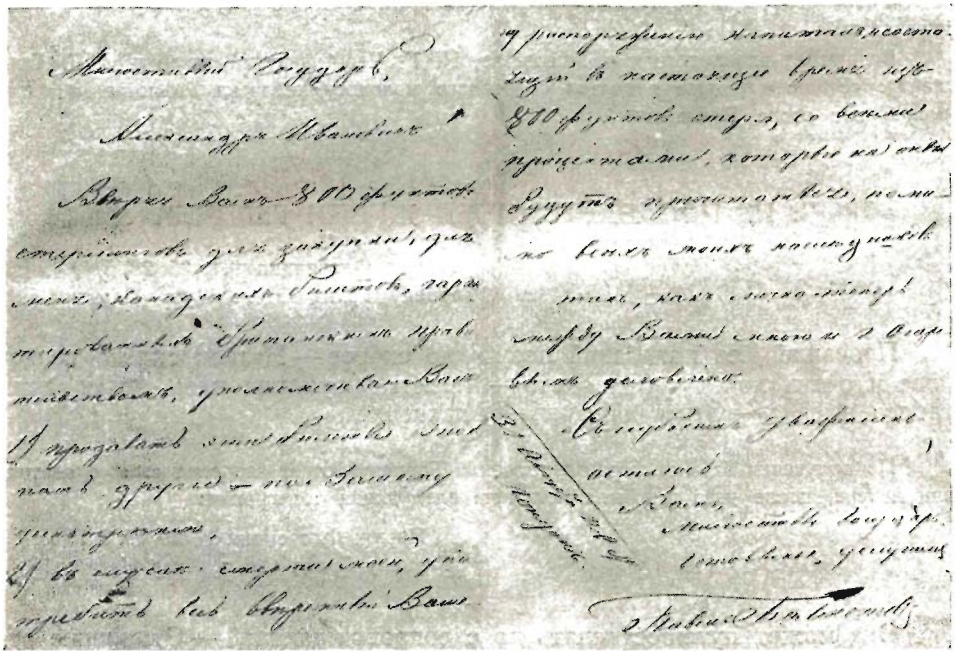 Милостивый Государь,
Александръ Ивановичъ
Ввѣряя Вамъ 800 фунтовъ
стерлинговъ для закупки, для
меня, канадскихъ билетовъ, гаран
тированныхъ Британскимъ прав
тельствомъ, уполномочиваю Васъ
1) продавать эти билеты и
пать другіе — по Вашему
усмотренію,
2) въ случаѣ смерти моей, упо
требить весь ввѣренный Ваше
му распоряженію капиталъ, состо
ящій въ настоящее время изъ
800 фунтовъ стерл, со всеми
процентами, которые на оный
будутъ причитаться, поми
мо всехъ моихъ наследниковъ
такъ, какъ лично теперь
между Вами мною и г Огар
вымъ условлено.
Съ глубокимъ уваженіемъ,
остаюсь
Вашъ,
Милостивый Государь
готовый къ услугамъ
Павелъ